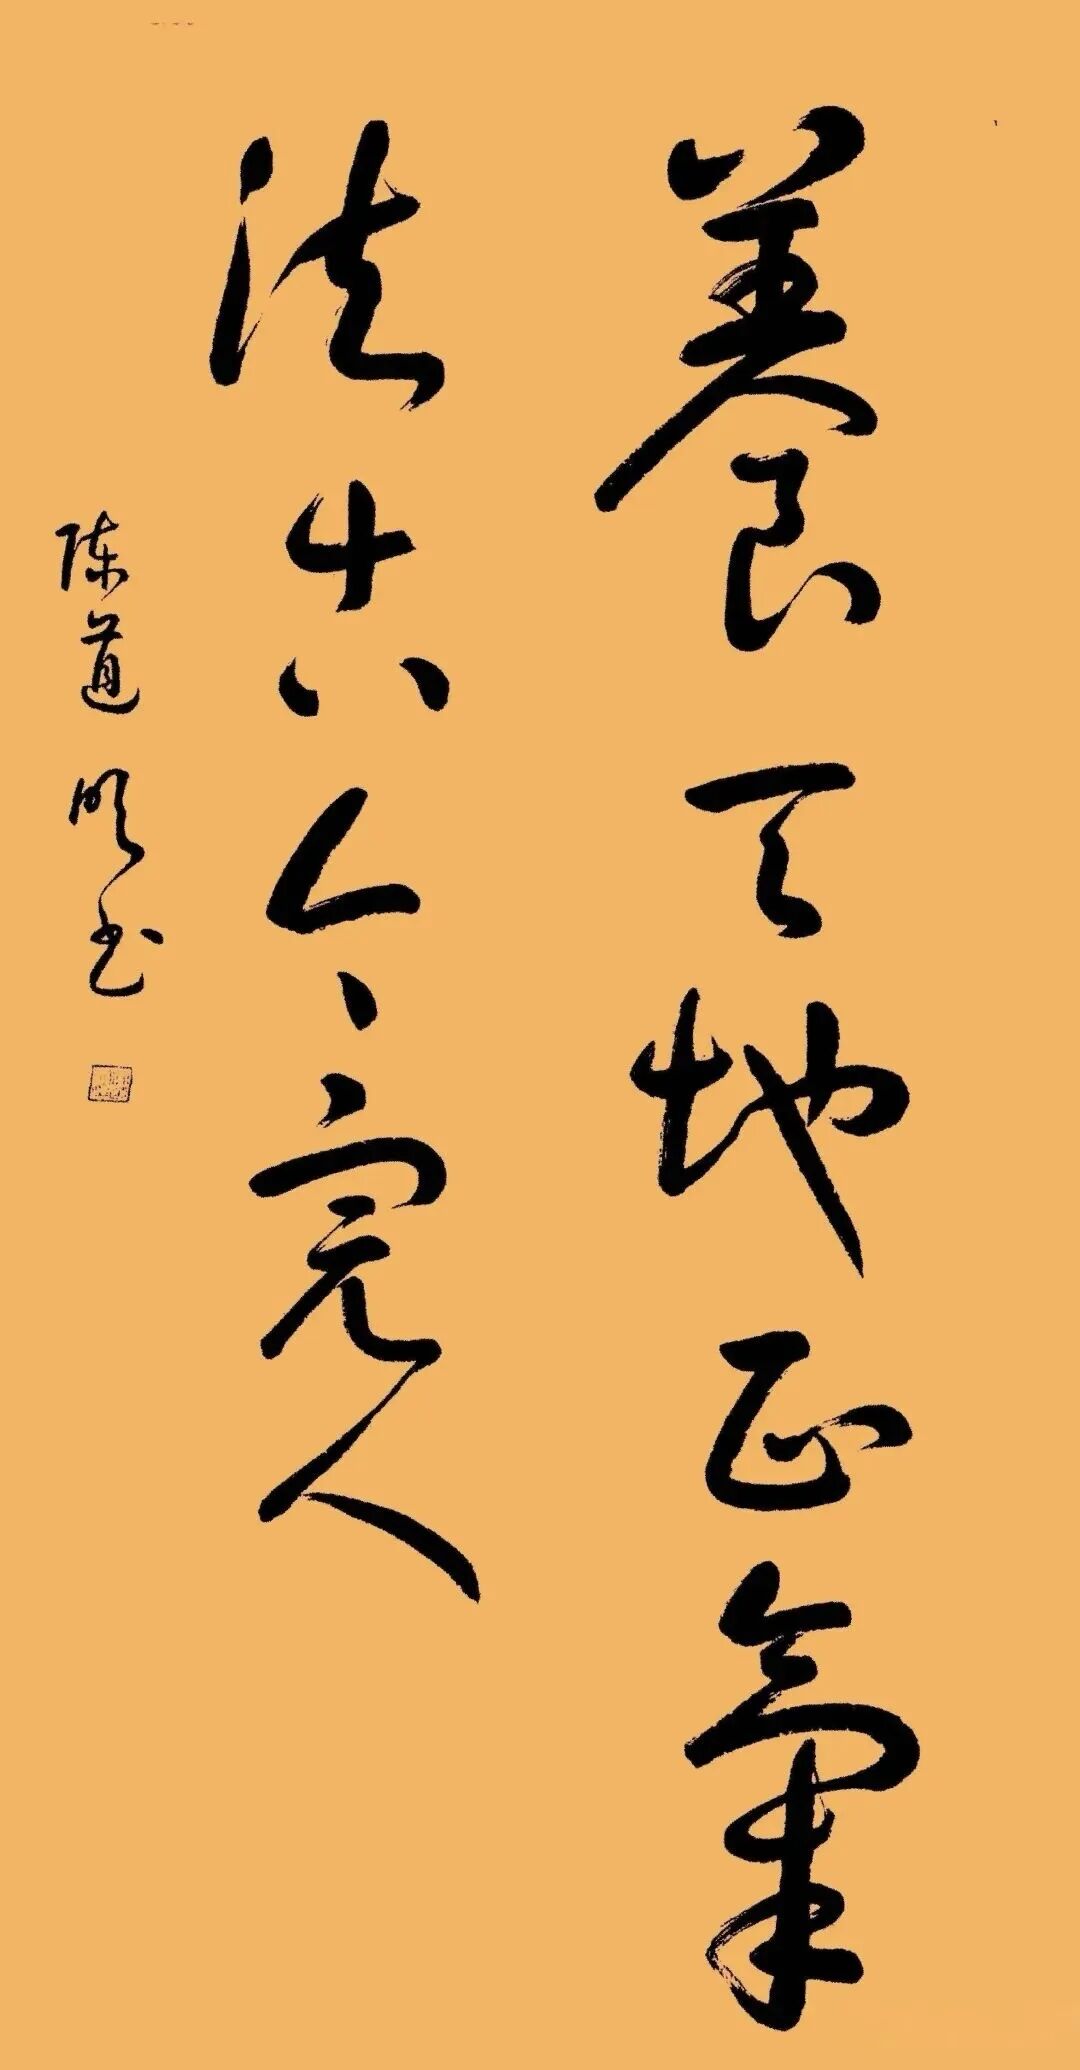 養天地正氣
法古今完人
陈道明书